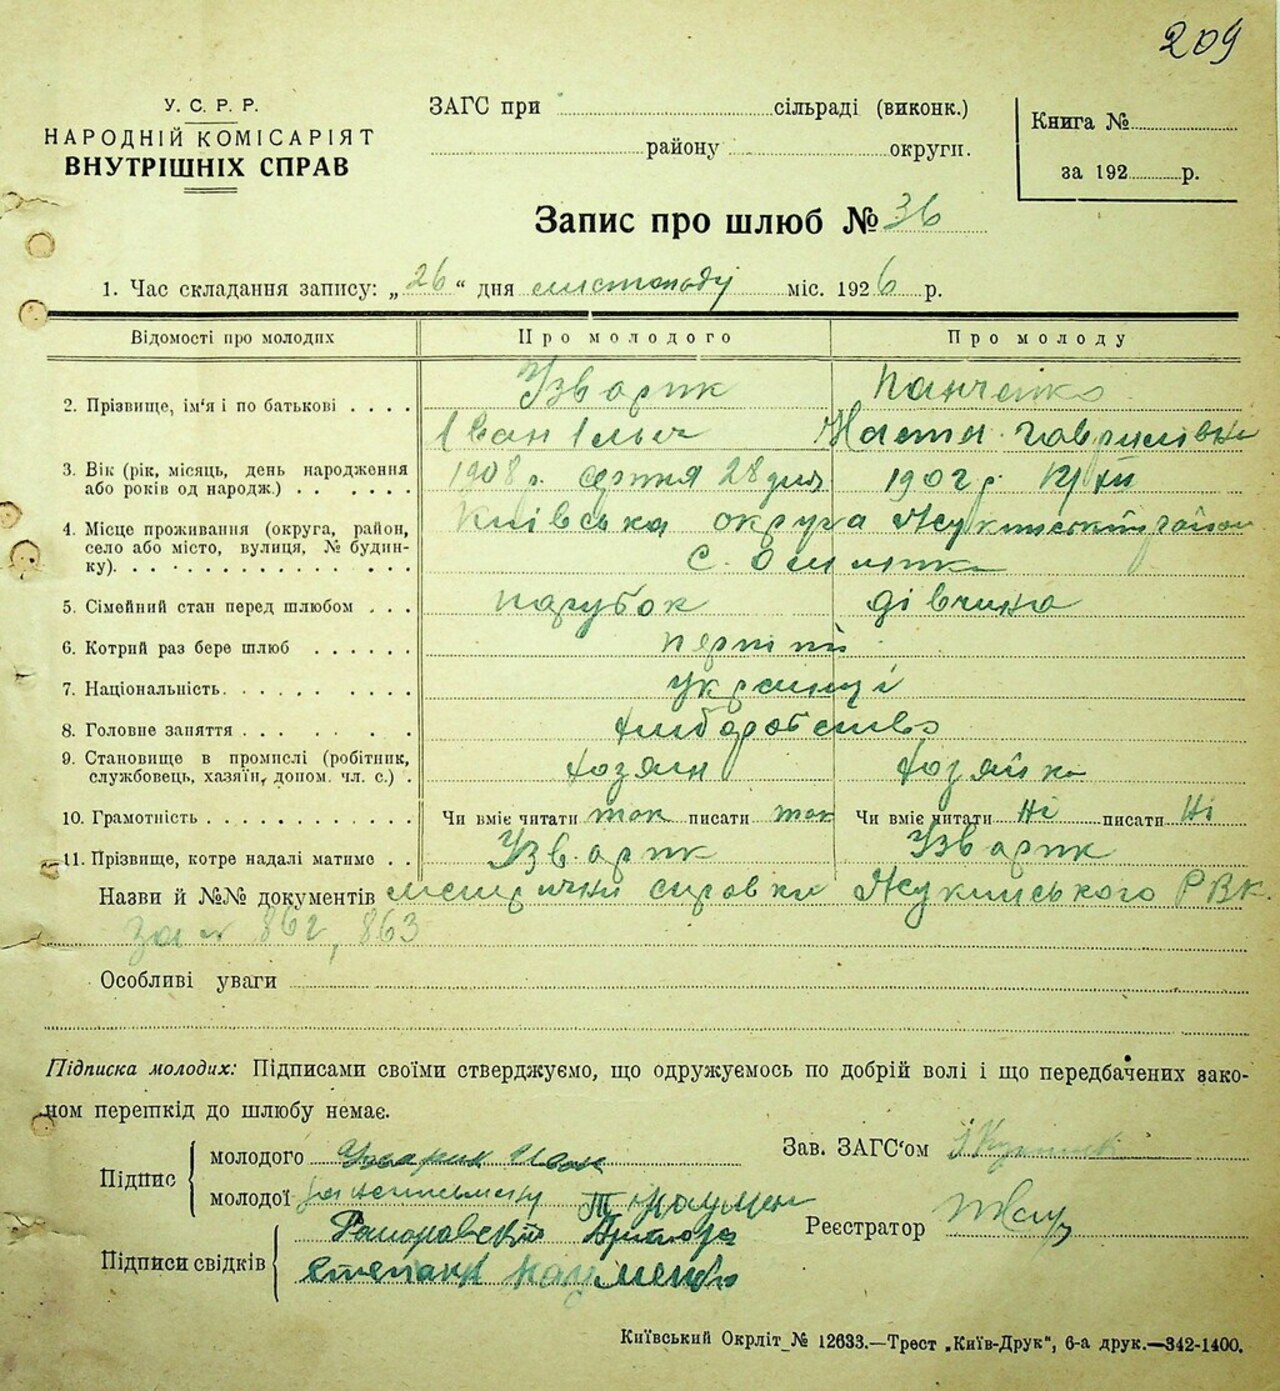 209
У. С. Р. Р.
НАРОДНІЙ КОМІСАРІЯТ
ВНУТРІШНІХ СПРАВ
ЗАГС при сільраді (виконк.)
району округи.
Книга №
за 192 р.
Запис про шлюб № 36
1. Час складання запису: „26“ дня листопаду міс. 1926 р.
Відомості про молодих Про молодого Про молоду
2. Прізвище, ім‘я і по батькові Узварик Панченко
Іван Ільч Наста Гаврилівна
3. Вік (рік, місяць, день народження 1908 р. серпня 28 дня 1902 р.
або років од народж.)
4. Місце проживання (округа, район, Київська округа Жукинський район
село або місто, вулиця, № будин- с.
ку).
5. Сімейний стан перед шлюбом парубок дівчина
6. Котрий раз бере шлюб перший
7. Національність українці
8. Головне заняття хліборобство
9. Становище в промислі (робітник, хозяин хозяйка
службовець, хазяїн, допом. чл. с.)
10. Грамотність Чи вміє читати так писати так Чи вміє читати Ні писати Ні
11. Прізвище, котре надалі матиме Узварик Узварик
Назви й №№ документів метричні справки Жукинського РВК.
За № 862, 863
Особливі уваги
Підписка молодих: Підписами своїми стверджуємо, що одружуємось по добрій волі і що передбачених зако-
ном перешкід до шлюбу немає.
Підпис
молодого Узварик Иван
молодої за неписьмену
Зав. ЗАГС‘ом
Реєстратор
Підписи свідків
Степан Науменко
Київський Окрліт № 12633.—Трест „Київ-Друк“, 6-а друк.—342-1400.